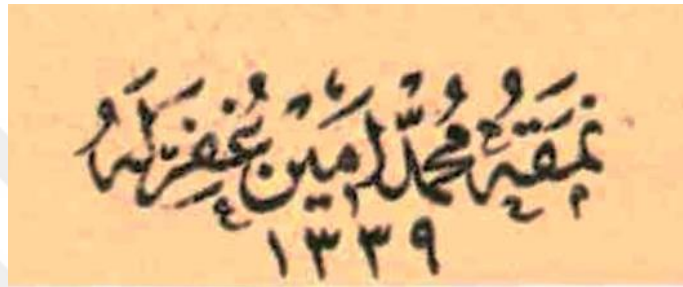 نَمَقَهُ مُحَمَّد اَمِين غُفِرَ لَهُ
١٣٣٩